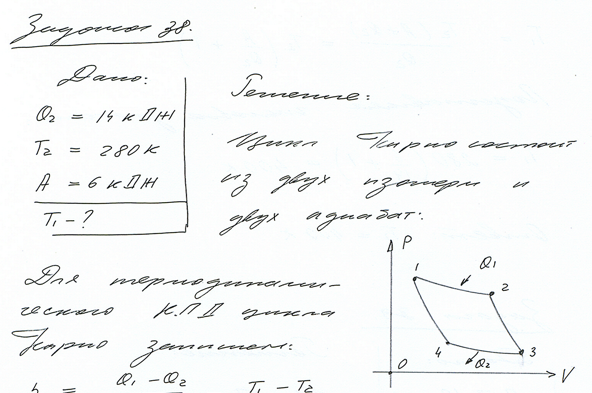 Задача 38.
Дано:
Q₂ = 14 кДж
T₂ = 280 к
A = 6 кДж
T₁ - ?
Решение:
Цикл Карно состоит
из двух изотерм и
двух адиабат:
P
1
Q₁
2
4
3
0
Q₂
V
Для термодинами-
ческого К.П.Д цикла
Карно запишем:
Q₁ - Q₂ T₁ - T₂